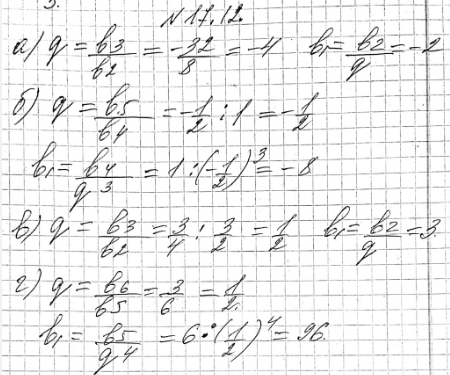 N 17.12.
а) q = b3/b2 = -32/8 = -4 b1 = b2/q = -2
б) q = b5/b4 = -1/2 : 1 = -1/2
b1 = b4/q^3 = 1 : (-1/2)^3 = -8
в) q = b3/b2 = 3/4 : 3/2 = 1/2 b1 = b2/q = 3.
г) q = b6/b5 = 3/6 = 1/2.
b1 = b5/q^4 = 6 : (1/2)^4 = 96.